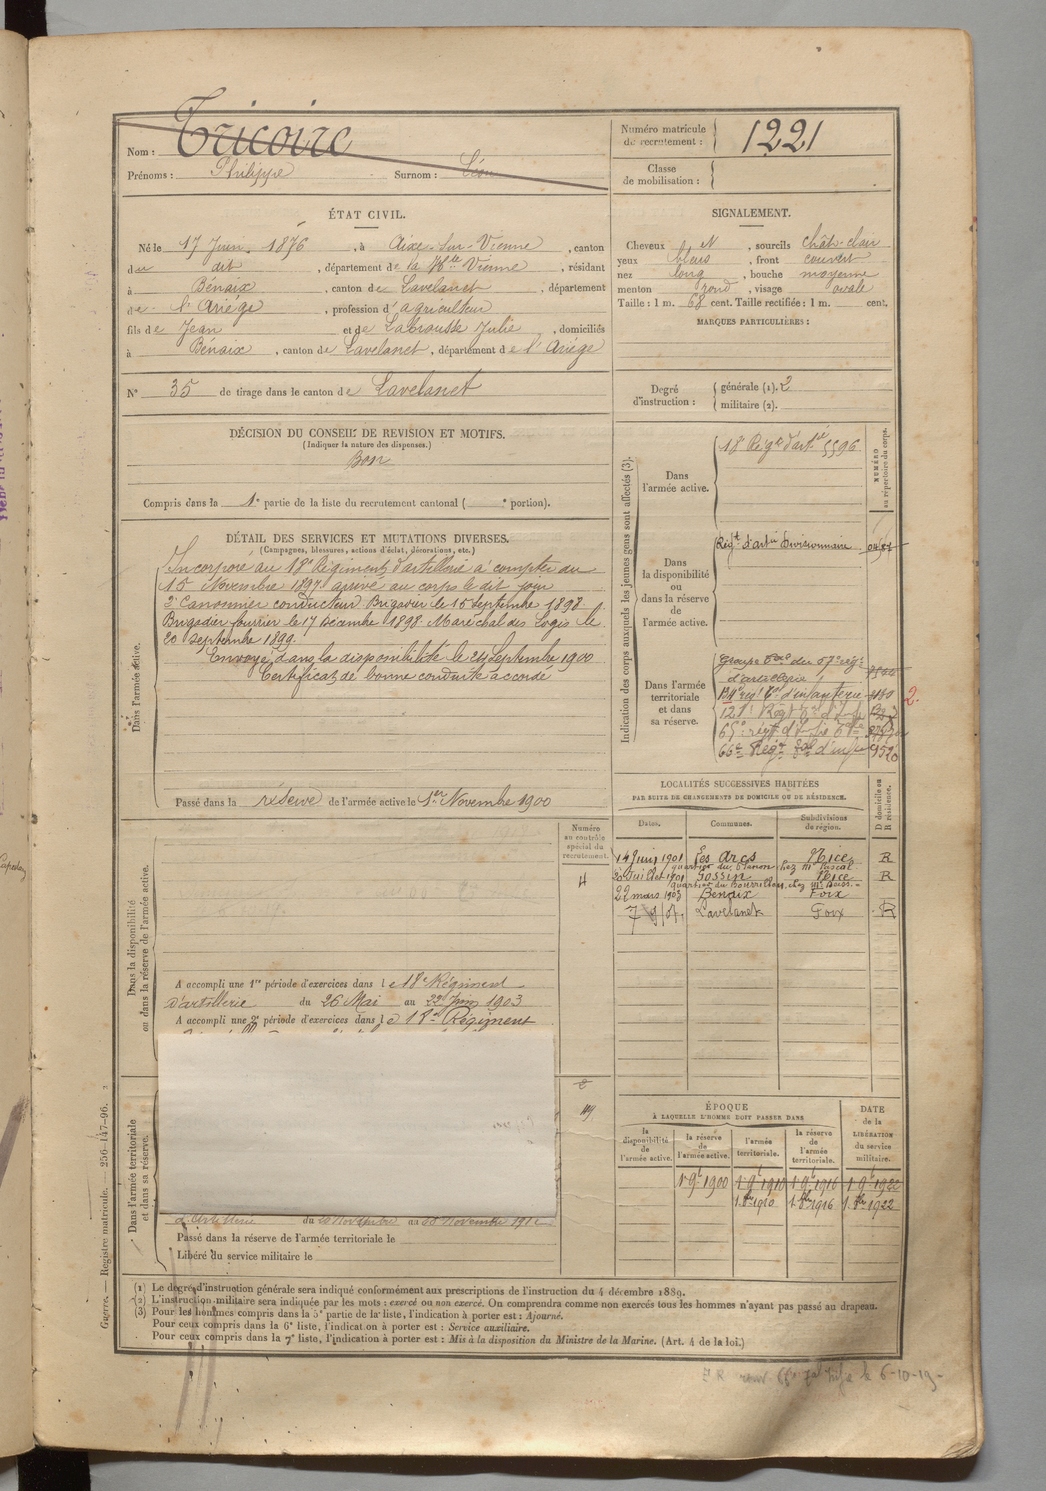 Nom : Tricoire
Prénoms : Philippe Surnom : Léon
Numéro matricule
de recrutement : 1221
Classe
de mobilisation :
ÉTAT CIVIL.
Né le 17 Juin 1876, à Aixe-sur-Vienne, canton
du dit, département de la Hte Vienne, résidant
à Bénaix, canton de Lavelanet, département
de l'Ariége, profession d'agriculteur
fils de Jean et de Labrousse Julie, domiciliés
à Bénaix, canton de Lavelanet, département de l'Ariége
N° 35 de tirage dans le canton de Lavelanet
SIGNALEMENT.
Cheveux N, sourcils chât-clair
yeux bleus, front couvert
nez long, bouche moyenne
menton rond, visage ovale
Taille : 1 m. 68 cent. Taille rectifiée : 1 m. cent.
MARQUES PARTICULIÈRES :
Degré
d'instruction :
générale (1). 2
militaire (2).
DÉCISION DU CONSEIL DE REVISION ET MOTIFS.
(Indiquer la nature des dispenses.)
Bon
Compris dans la 1e partie de la liste du recrutement cantonal ( e portion).
DÉTAIL DES SERVICES ET MUTATIONS DIVERSES.
(Campagnes, blessures, actions d'éclat, décorations, etc.)
Dans l'armée active.
Incorporé au 18e Régiment d'artillerie à compter du
15 Novembre 1897 arrivé au corps le dit jour
2e Canonnier conducteur Brigadier le 15 Septembre 1898
Brigadier fourrier le 17 Décembre 1898 Maréchal des Logis le
20 Septembre 1899
Envoyé dans la disponibilité le 24 Septembre 1900
Certificat de bonne conduite accordé
Passé dans la réserve de l'armée active le 1er Novembre 1900
Indication des corps auxquels les jeunes gens sont affectés (3).
NUMÉRO
au répertoire du corps.
Dans
l'armée active.
18e Régt d'artie 5596
Dans
la disponibilité
ou
dans la réserve
de
l'armée active.
Régt d'artie Divisionnaire
Dans l'armée
territoriale
et dans
sa réserve.
Groupe du 57e rég
d'artillerie
134e rég Tal d'infanterie
65e régt
66e Régt d'infie
2.
LOCALITÉS SUCCESSIVES HABITÉES
PAR SUITE DE CHANGEMENTS DE DOMICILE OU DE RÉSIDENCE.
Dates. Communes. Subdivisions
de région. D domicile ou
R résidence.
14 Juin 1901 Les Arcs Nice R
quartier du Planon chez Mr Pascal
20 Juillet 1901 Gossin Nice R
22 mars 1903 Bénaix Foix
Lavelanet Foix R
Numéro
au contrôle
spécial du
recrutement.
H
Dans la disponibilité
ou dans la réserve de l'armée active.
A accompli une 1re période d'exercices dans le 18e Régiment
D'artillerie du 26 Mai au 22 Juin 1903
A accompli une 2e période d'exercices dans le 18e Régiment
Dans l'armée territoriale
et dans sa réserve.
d'Artillerie du Novembre au Novembre
Passé dans la réserve de l'armée territoriale le
Libéré du service militaire le
ÉPOQUE
À LAQUELLE L'HOMME DOIT PASSER DANS
DATE
de la
LIBÉRATION
du service
militaire.
la
disponibilité
de
l'armée active.
la réserve
de
l'armée active.
l'armée
territoriale.
la réserve
de
l'armée
territoriale.
1 9bre 1900 1 9bre 1910 1 9bre 1916 1 9bre 1922
1. 8bre 1910 1. 8bre 1916 1. 8bre 1922
(1) Le degré d'instruction générale sera indiqué conformément aux prescriptions de l'instruction du 4 décembre 1889.
(2) L'instruction militaire sera indiquée par les mots : exercé ou non exercé. On comprendra comme non exercés tous les hommes n'ayant pas passé au drapeau.
(3) Pour les hommes compris dans la 5e partie de la liste, l'indication à porter est : Ajourné.
Pour ceux compris dans la 6e liste, l'indication à porter est : Service auxiliaire.
Pour ceux compris dans la 7e liste, l'indication à porter est : Mis à la disposition du Ministre de la Marine. (Art. 4 de la loi.)
Gagerre. — Registre matricule. 256-147-96.
le 6-10-19